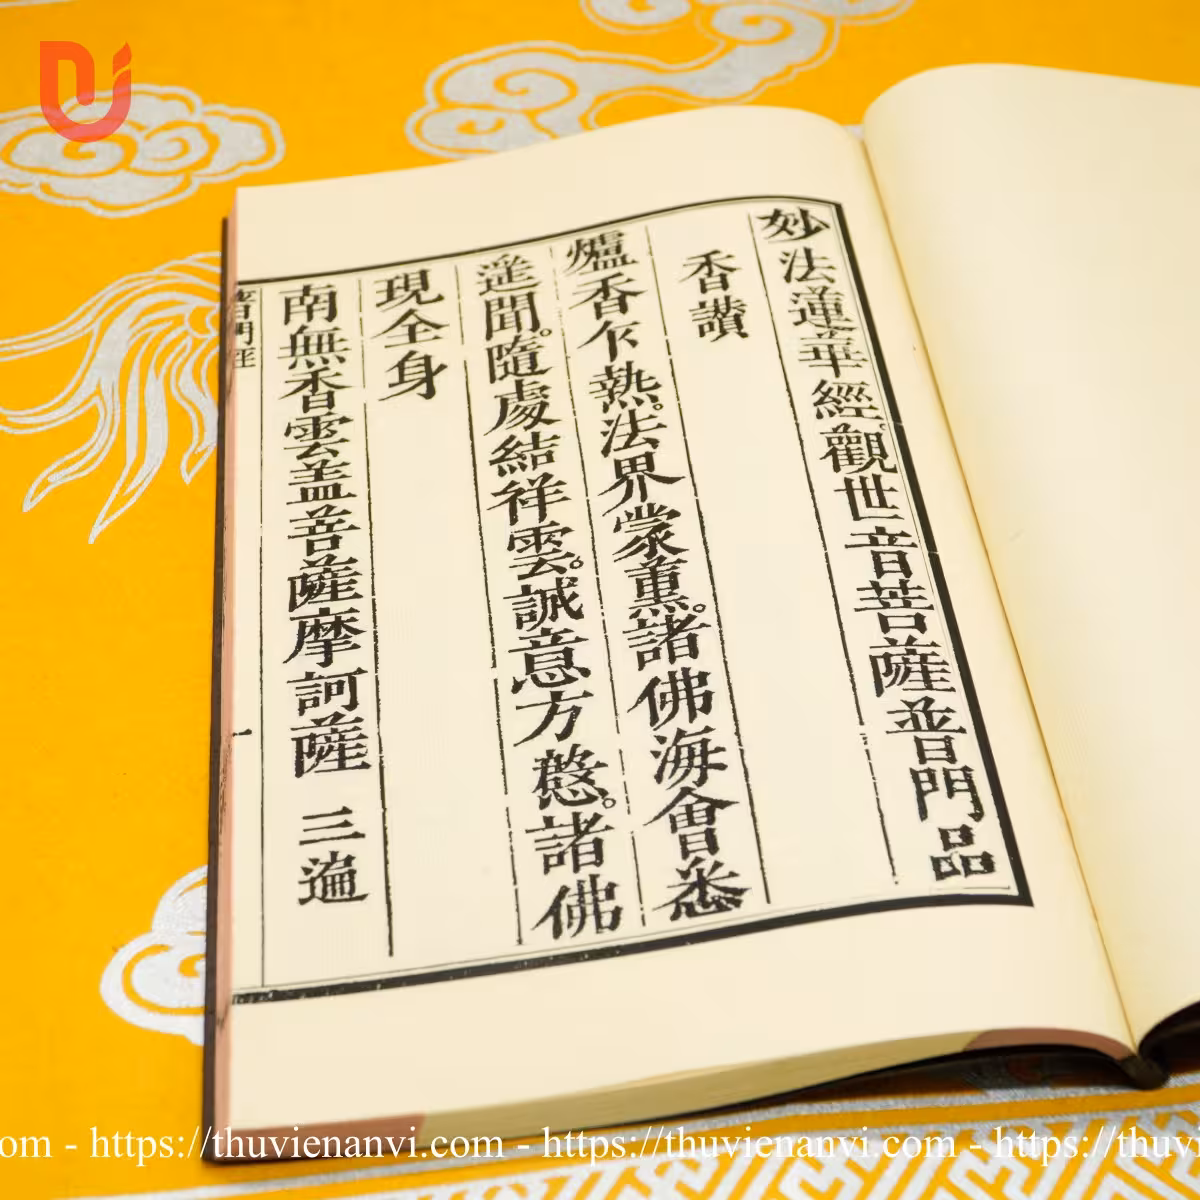 妙法蓮華經。觀世音菩薩普門品
香讚
爐香乍爇。法界蒙熏。諸佛海會悉
遙聞。隨處結祥雲。誠意方慇。諸佛
現全身
南無香雲盖菩薩摩訶薩 三遍
普門經
一
https://thuvienanvi.com - https://thuvienanvi.com -